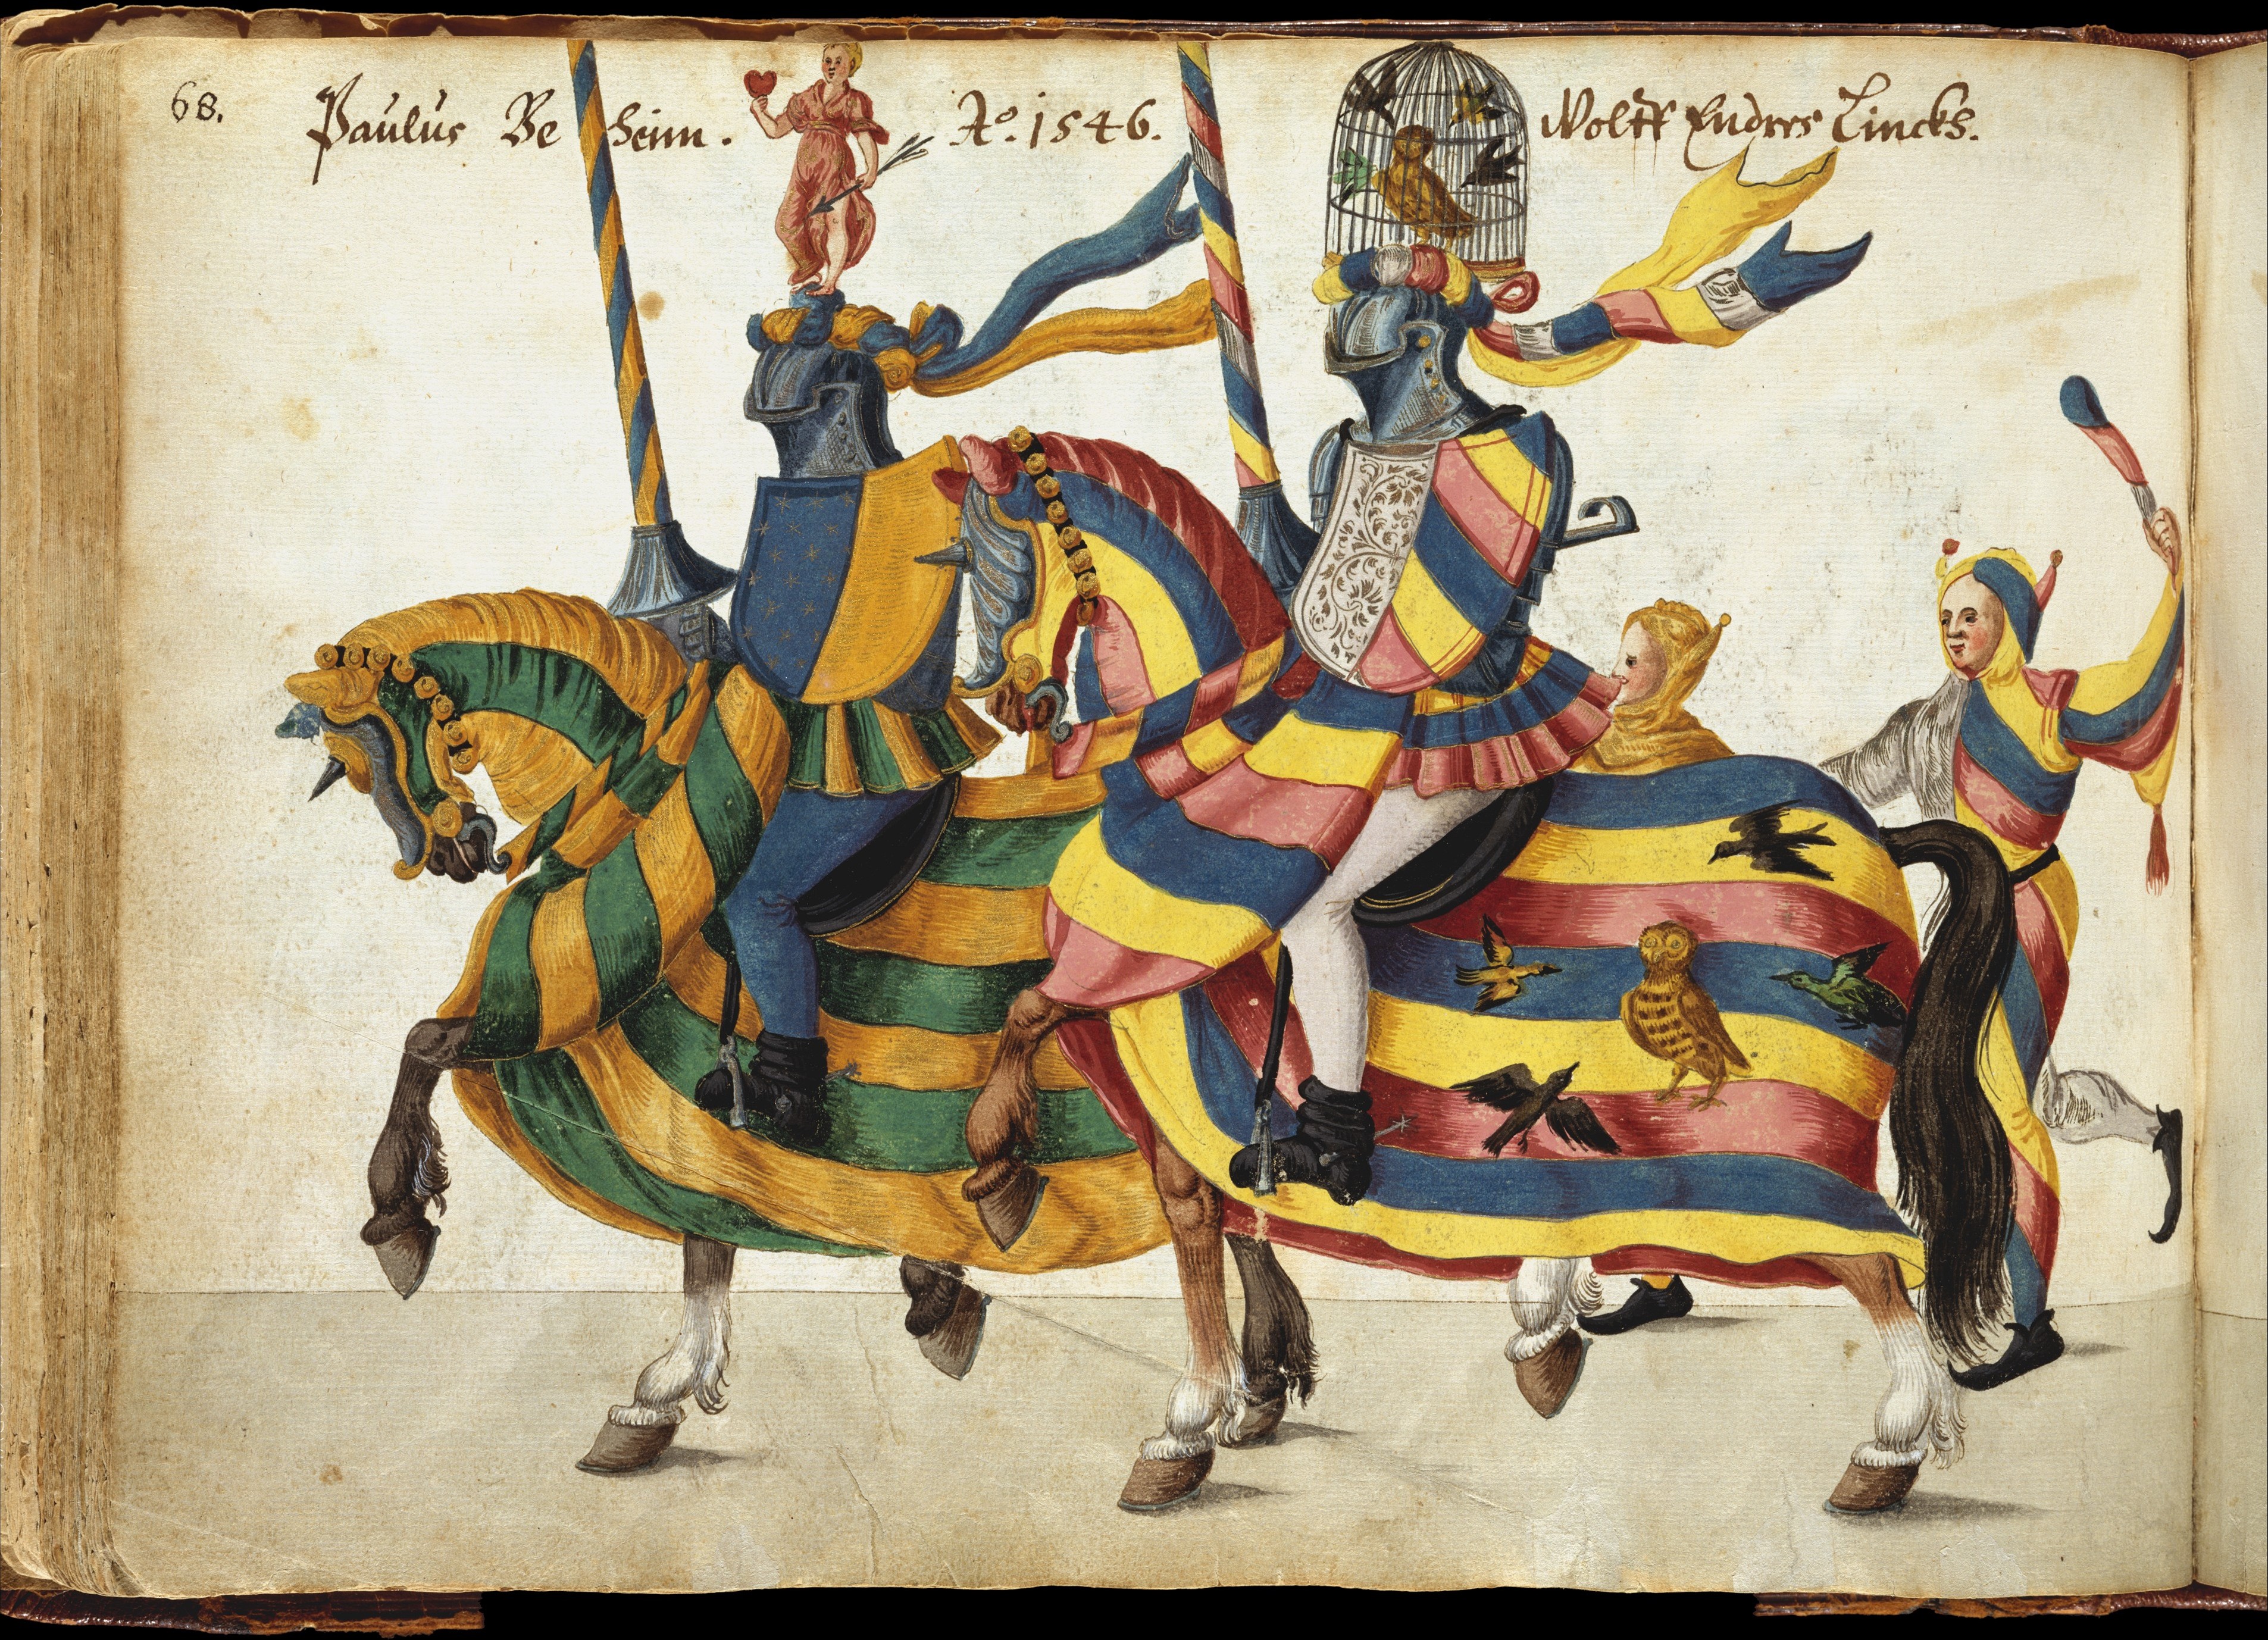 68. Paulus Beheim. Ao. 1546. Wolff Endres Lincks.